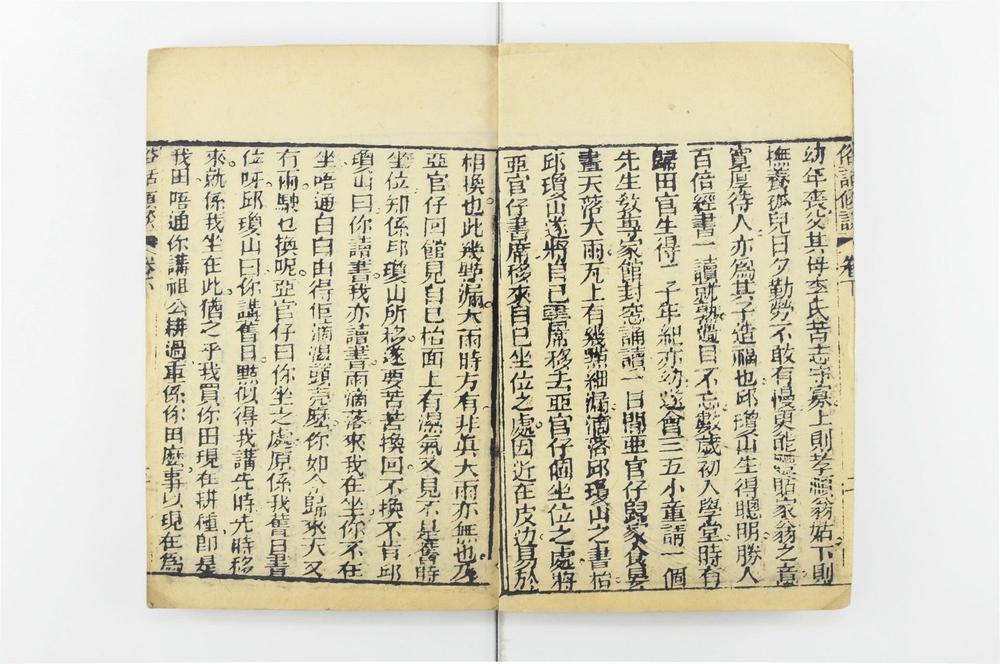 俗話傾談 卷下 二
幼年喪父其母李氏苦志守寡上則孝順翁姑下則
撫養孤兒日夕勤勞不敢有慢更能體貼家翁之意
寬厚待人亦爲其子造福也邱瓊山生得聰明勝人
百倍經書一讀就熟過目不忘數歲初入學堂時有
歸田官生得二子年紀亦幼遂會三五小童請一個
先生敎專家館封窓誦讀一日閒亞官仔歸家食晏
晝天落大雨瓦上有幾點細漏滴落邱瓊山之書枱
邱瓊山遂將自己書席移去亞官仔個坐位之處將
亞官仔書席移來自己坐位之處因近在皮边易於
相換也此幾點漏大雨時方有非眞大雨亦無也乃
亞官仔回館見自己枱面上有濕氣又見不是舊時
坐位知係邱瓊山所移遂要苦苦換回不換不肯邱
瓊山曰你讀書我亦讀書雨滴落來我在坐你不在
坐唔通白白由得佢滴濕頭壳麽你如今歸來天又
冇雨駛乜換呢亞官仔曰你坐之處原係我舊日書
位呀邱瓊山曰你講舊日點似得我講先時先時移
來就係我坐在此猶之乎我買你田現在耕種卽是
我田唔通你講祖公耕過重係你田麽事以現在爲
俗話傾談 卷下